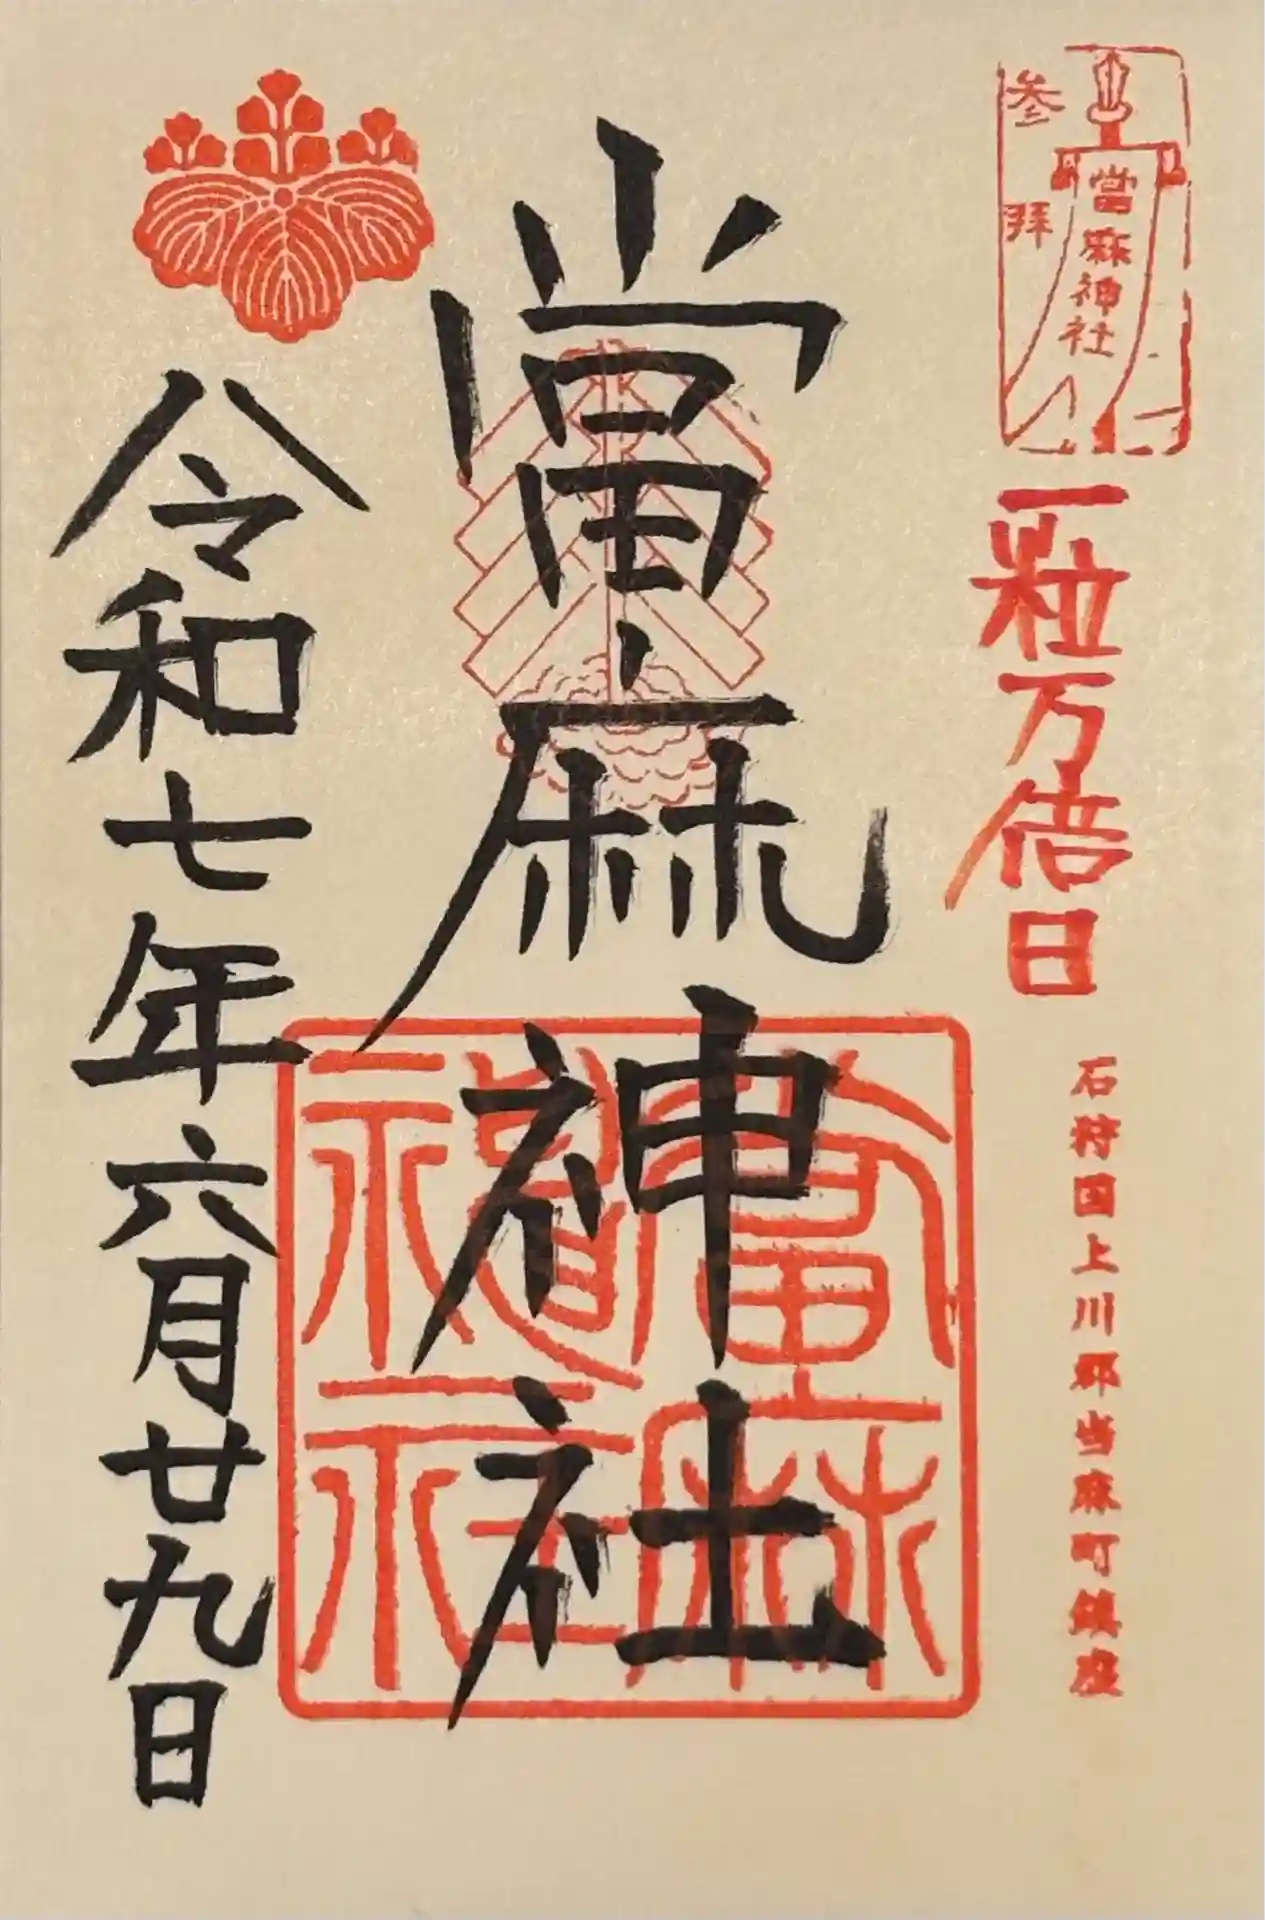 参拝
當麻神社
一粒万倍日
石狩国上川郡当麻町鎮座
當麻神社
令和七年六月廿九日